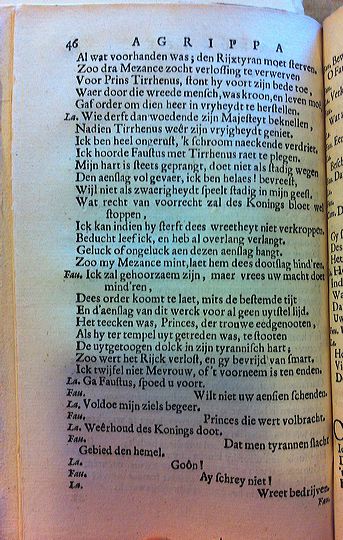 46 AGRIPPA
Al wat voorhanden was; den Rijxtyran moet sterven.
Zoo dra Mezance zocht verlossing te verwerven
Voor Prins Tirrhenus, stont hy voort zijn bede toe,
Waer door die wreede mensch, was kroon, en leven moê
Gaf order om dien heer in vryheydt te herstellen.
La. Wie derft dan woedende zijn Majesteyt beknellen,
Nadien Tirrhenus weêr zijn vryigheydt geniet.
Ick ben heel ongerust, 'k schroom naeckende verdriet,
Ick hoorde Faustus met Tirrhenus raet te plegen.
Mijn hart is steets geprangt, doet niet als stadig wegen
Den aenslag vol gevaer, ick ben helaes! bevreest,
Wijl niet als zwaerigheydt speelt stadig in mijn geest.
Wat recht van voorrecht zal des Konings bloet wel
stoppen,
Ick kan indien hy sterft dees wreetheyt niet verkroppen.
Beducht leef ick, en heb al overlang verlangt.
Geluck of ongeluck aen dezen aenslag hangt.
Zoo my Mezance mint, laet hem dees dootslag hind'ren,
Fau. Ick zal gehoorzaem zijn, maer vrees uw macht doet
mind'ren,
Dees order koomt te laet, mits de bestemde tijt
En d'aenslag van dit werck voor al geen uytstel lijd.
Het teecken was, Princes, der trouwe eedgenooten,
Als hy ter tempel uyt getreden was, te stooten
De uytgetoogen dolck in zijn tyrannisch hart;
Zoo wert het Rijck verlost, en gy bevrijd van smart,
Ick twijfel niet Mevrouw, of 't voorneem is ten enden.
La. Ga Faustus, spoed u voort.
Fau. Wilt niet uw aensien schenden.
La. Voldoe mijn ziels begeer.
Fau. Princes die wert volbracht.
La. Weêrhoud des Konings doot.
Fau. Dat men tyrannen slacht
Gebied den hemel.
La. Goôn!
Fau. Ay schrey niet!
La. Wreet bedrijven
Fau.